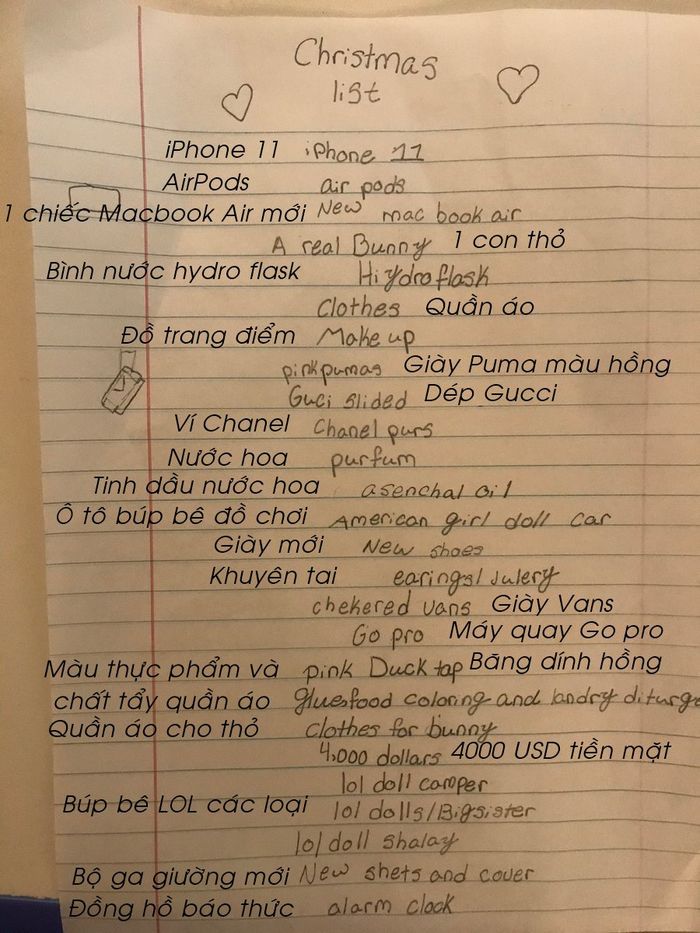 Christmas
list
iPhone 11 iphone 11
AirPods air pods
1 chiếc Macbook Air mới New mac book air
A real Bunny 1 con thỏ
Bình nước hydro flask Hiydroflask
clothes Quần áo
Đồ trang điểm Make up
pinkpumas Giày Puma màu hồng
Guci slided Dép Gucci
Ví Chanel Chanel purs
Nước hoa purfum
Tinh dầu nước hoa asenchal oil
Ô tô búp bê đồ chơi American girl doll car
Giày mới New shoes
Khuyên tai earings/julery
chekered vans Giày Vans
Go pro Máy quay Go pro
Màu thực phẩm và pink Duck tap Băng dính hồng
chất tẩy quần áo glue,food coloring and landry diturge
Quần áo cho thỏ clothes for bunny
4,000 dollars 4000 USD tiền mặt
lol doll camper
Búp bê LOL các loại lol dolls/Bigsister
lol doll shalay
Bộ ga giường mới New shets and cover
Đồng hồ báo thức alarm clock